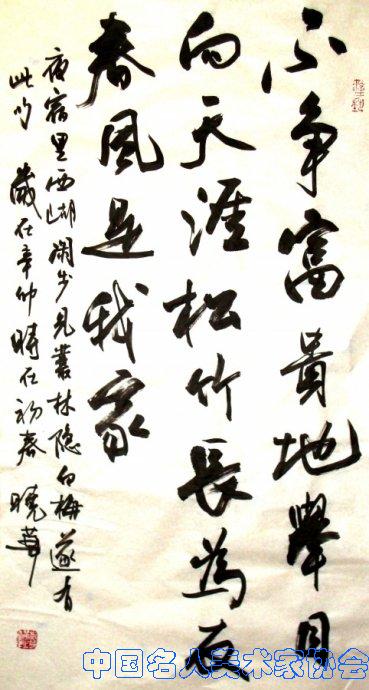 不争富贵地舉目
向天涯松竹長為友
春風是我家
夜宿里西湖闲步見叢林隐白梅遂有
此吟 歲在辛卯 時在初春 曉華
中国名人美术家协会